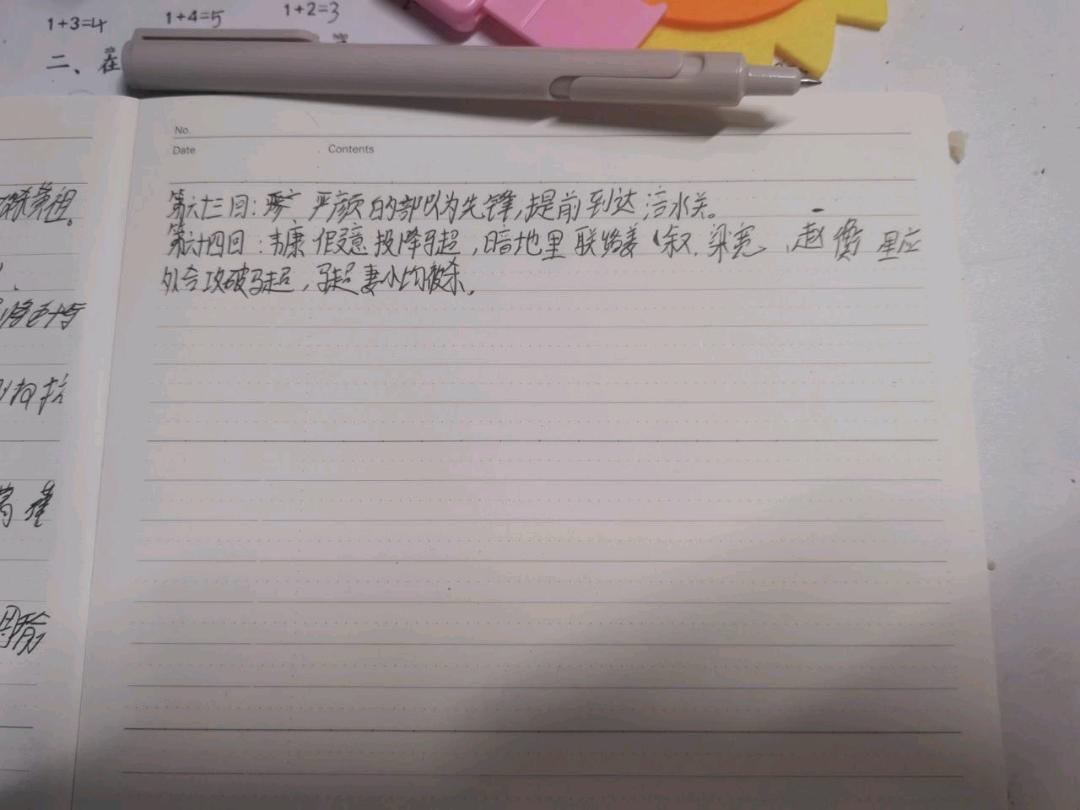 1+3=4 1+4=5 1+2=3
二、在
No.
Date Contents
第六十三回：严颜的部以为先锋,提前到达涪水关。
第六十四回：韦康假意投降马超,暗地里联络姜叙、梁宽、赵衢里应
外合攻破马超,马超妻小均被杀。
周瑜